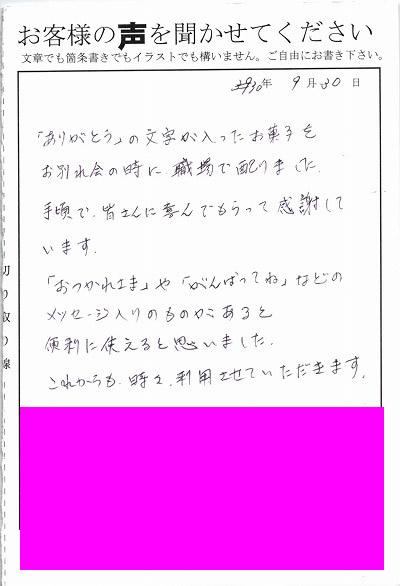 お客様の声を聞かせてください
文章でも箇条書きでもイラストでも構いません。ご自由にお書き下さい。
年 9月30日
「ありがとう」の文字が入ったお菓子を
お別れ会の時に、職場で配りました.
手頃で、皆さんに喜んでもらって感謝して
います.
「おつかれさま」や「がんばってね」などの
メッセージ入りのものがあると
便利に使えると思いました.
これからも、時々、利用させていただきます.
切り取り線